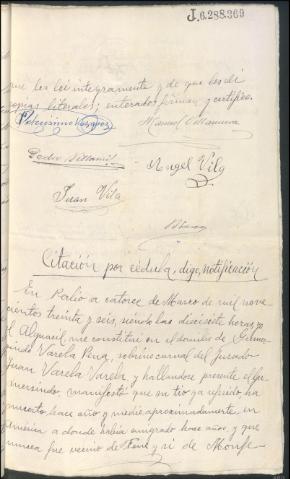 J.6.288.369
que les leí integramente y de que les dí
copias literales; enterados firman y certifico.
Manuel Villanueva
Angel Vila
Juan Vila
Citación por cédula, digo, notificación
En Perlio a catorce de Marzo de mil nove-
cientos treinta y seis, siendo las diecisiete horas yo
el Alguacil me constituí en el domicilio de Gume-
sindo Varela Pena, sobrino carnal del jurado
Juan Varela Varela y hallandose presente el Gu-
mersindo, manifestó que su tío ya referido ha
muerto hace año y medio aproximadamente, en
América a donde había emigrado hace años, y que
nunca fue vecino de Fene y si de Monfe-